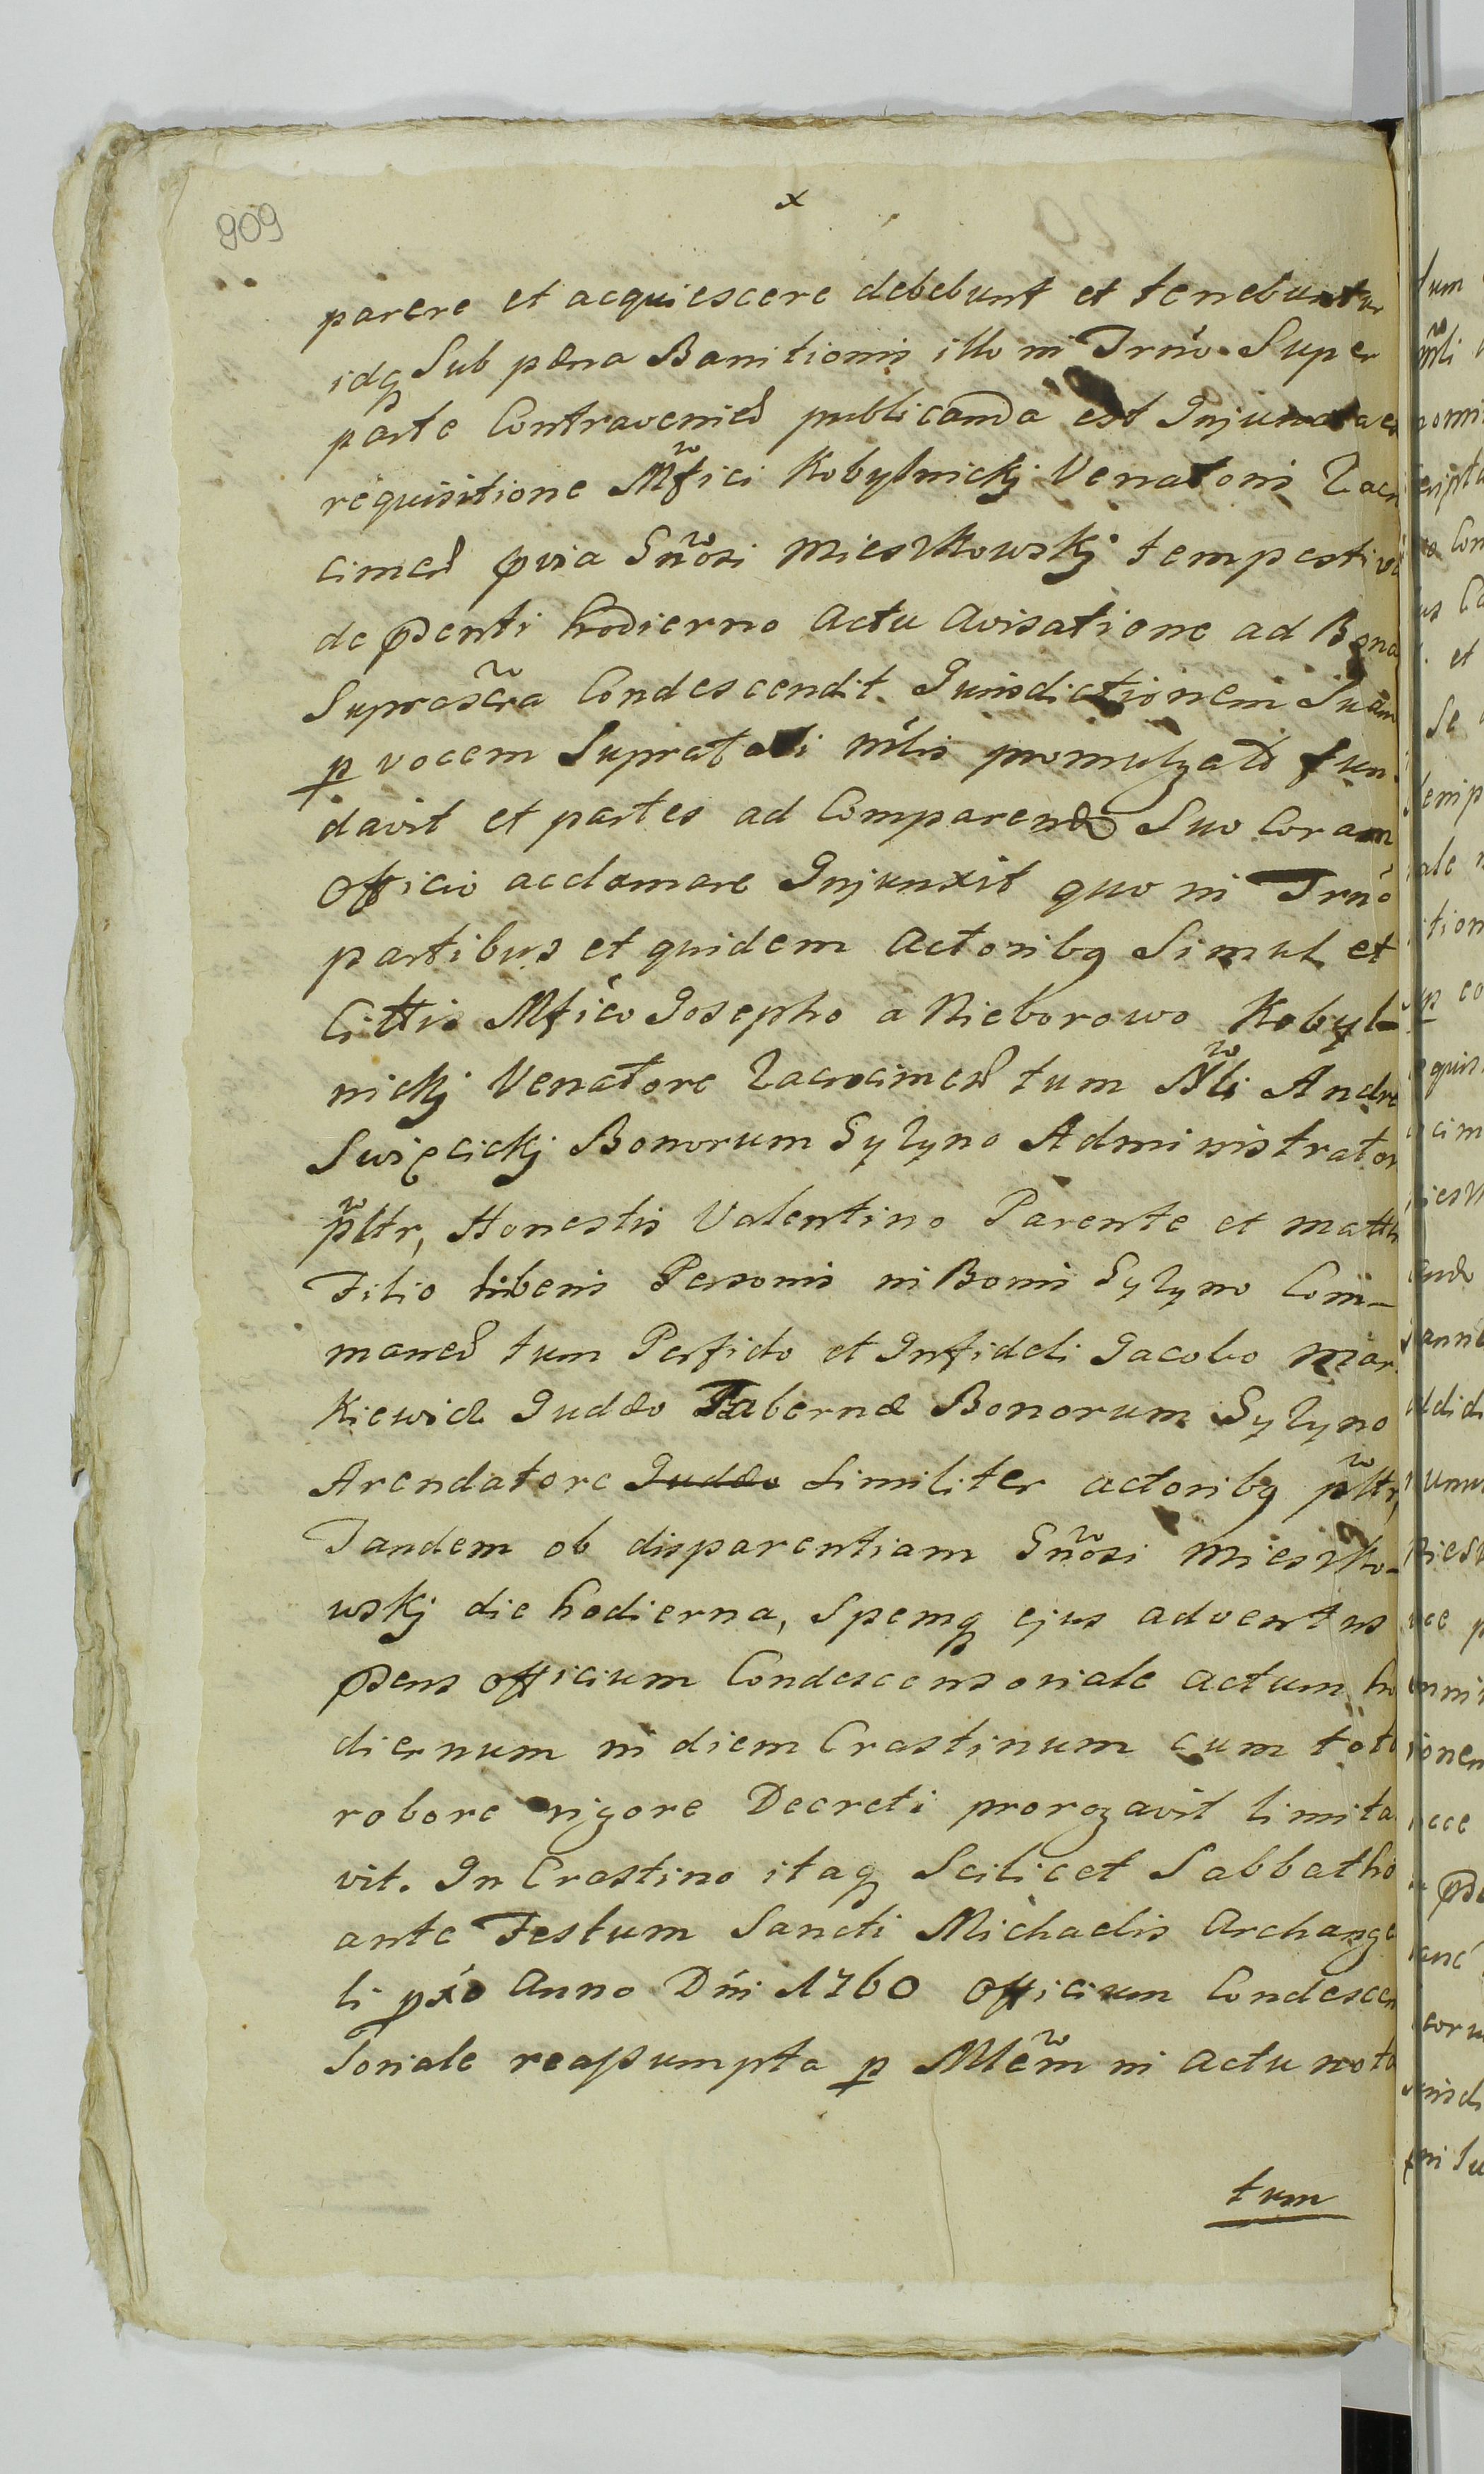 909
x
parere et acquiescere debebunt et tenebuntur
idq Sub pœna Banitionis illo in Trno Super
parte Contravenied publicanda est Injuncta et
requisitione Mfici Kobylnickj Venatoris Zacro
cimed prvia Gnosi Mieszkowskj tempestiva
de pdenti hodierno Actu Avisatione ad Bona
Suprascra Condescendit Jurisdictionem Suam
p vocem Supratacti mlis promulgato fun-
davit et partes ad Comparend Suo Coram
Officio acclamare Injunxit quo in Trno
partibus et quidem Actoribq Simul et
Cittis Mfico Josepho a Nieborowo Kobyl-
nickj Venatore Zacrocimed tum Nbli Andre
Swięcickj Bonorum Gyzyno Administrator
pltr, Honestis Valentino Parente et Matth
Filio liberis Personis in Bonis Gyzyno Com-
maned tum Perfido et Infideli Jacobo Mar
kiewicz Judæo Tabernæ Bonorum Gyzyno
Arendatore Judæo Similiter actoribq pltr,
Tandem ob disparentiam Gnosi Mieszko-
wskj die hodierna, Spemq ejus adventus
pdens officium Condescensoriale actum ho
diernum in diem Crastinum cum toto
robore rigore Decreti prorogavit limita
vit. In Crastino itaq Scilicet Sabbatho
ante Festum Sancti Michaelis Archange
li pxo Anno Dni 1760 Officium Condescen
Soriale reassumpta p Mlem in actu noto
tum